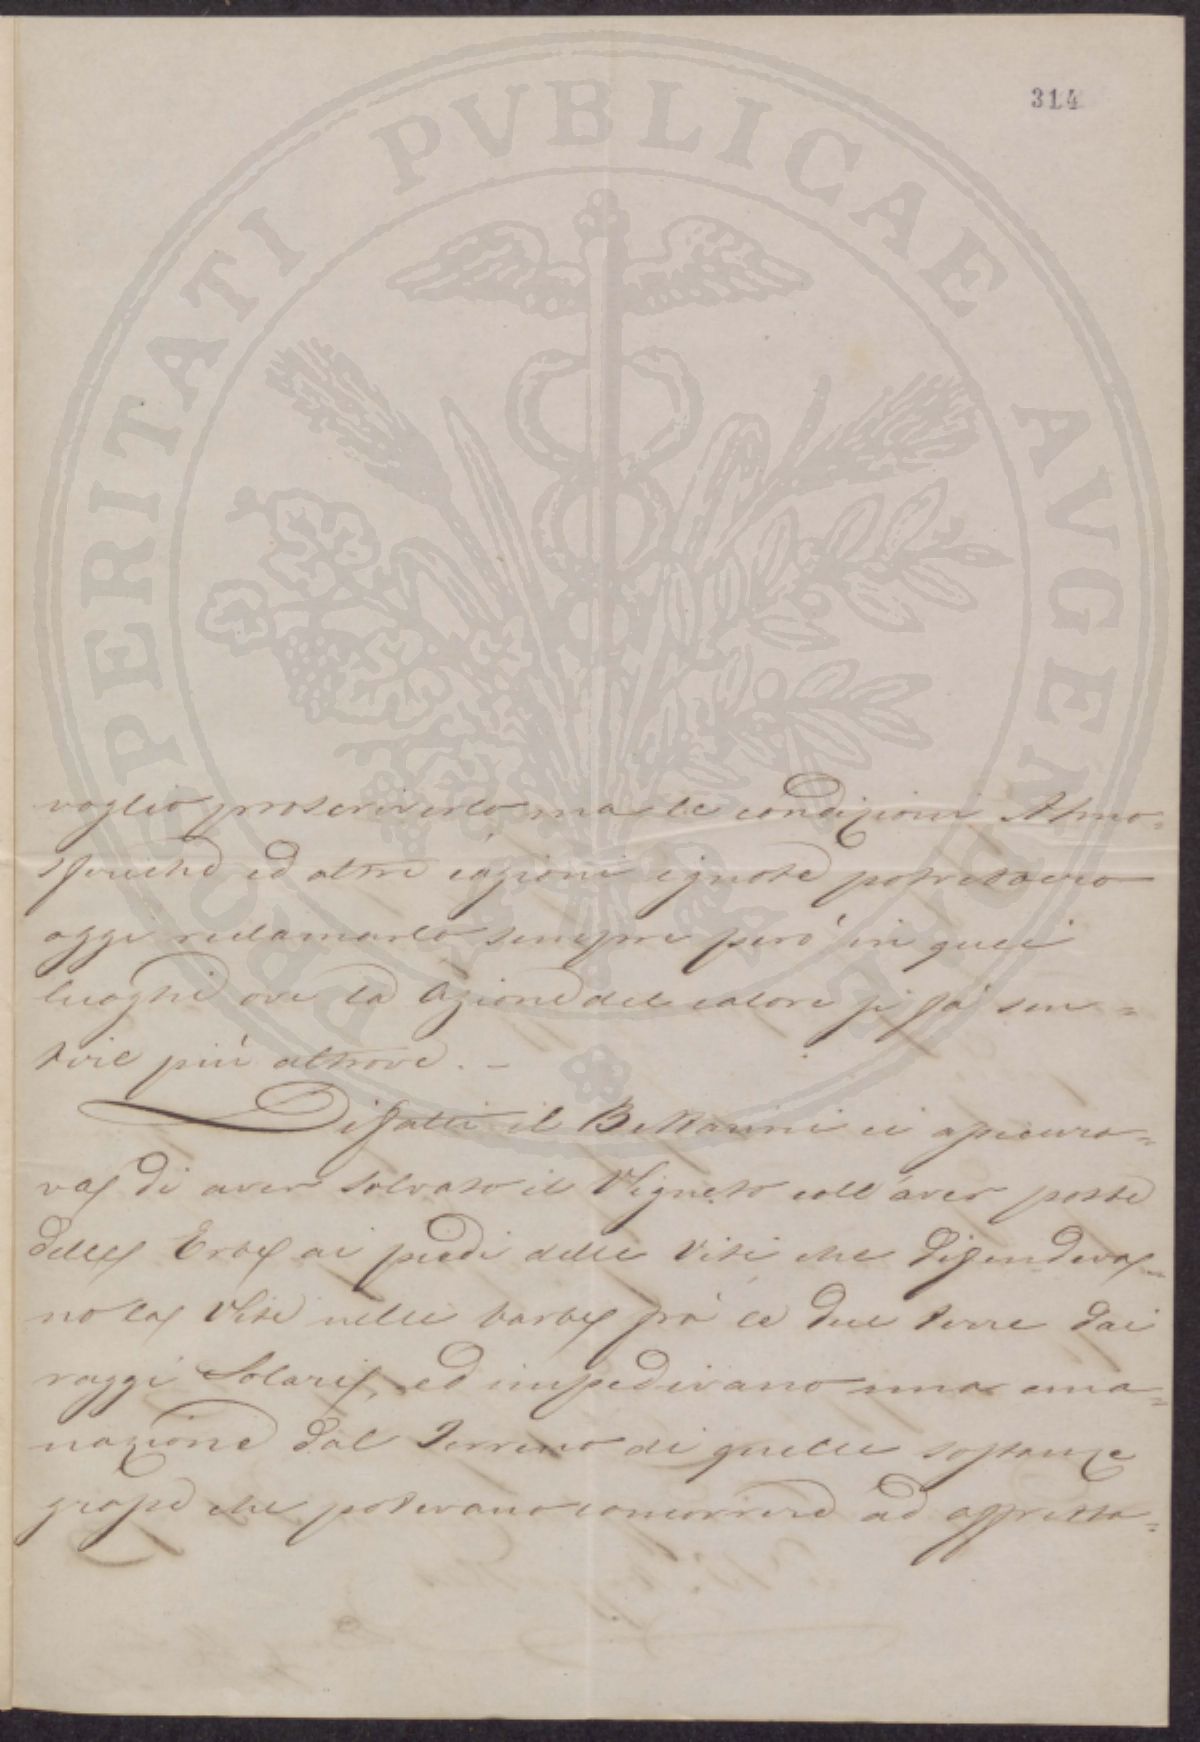 314
PROSPERITATI PVBLICAE AVGENDAE
voglio proscriverlo ma le condizioni Atmo=
sferiche ed altre cagioni ignote potrebbero
oggi reclamarlo sempre però in quei
luoghi ove la Azione del calore si fà sen=
tire più altrove. –
Difatti il Bettarini ci assicura=
va di aver salvato il Vigneto coll'aver poste
delle Erbe ai piedi delle Viti che difendeva=
no la Vite nelle barbe frà le due terre dai
raggi Solari, ed impedivano una ema=
nazione dal Terreno di quelle sostanze
grasse che potevano concorrere ad affretta=